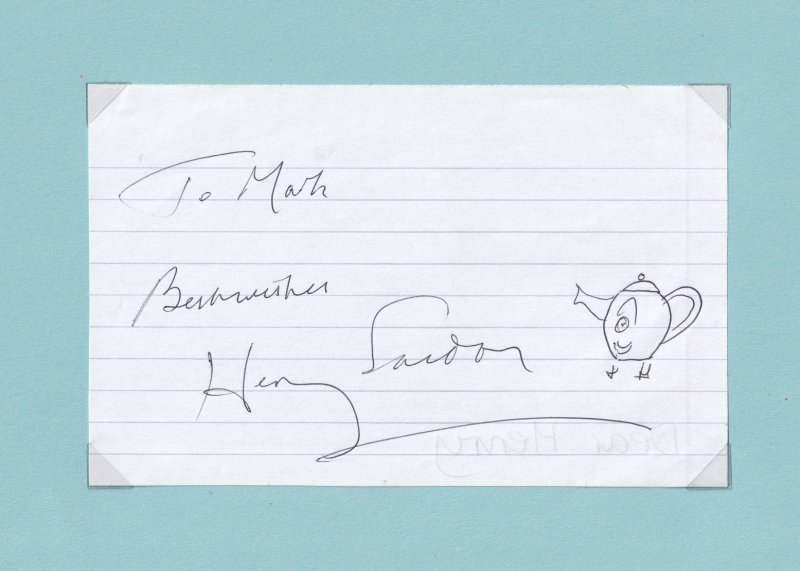 To Mark
Best wishes
Henry Sandon
Dear Henry